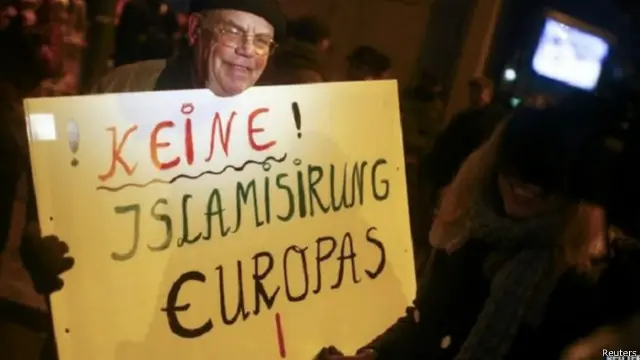 ! KEINE!
ISLAMISIRUNG
EUROPAS
!
Reuters